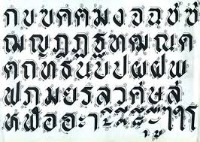 ก ข ฃ ค ฅ ฆ ง จ ฉ ช ซ
ฌ ญ ฎ ฏ ฐ ฑ ฒ ณ ด
ต ถ ท ธ น บ ป ผ ฝ พ
ฟ ภ ม ย ร ล ว ศ ษ ส
ห ฬ อ ฮ ะ า ไ ใ โ